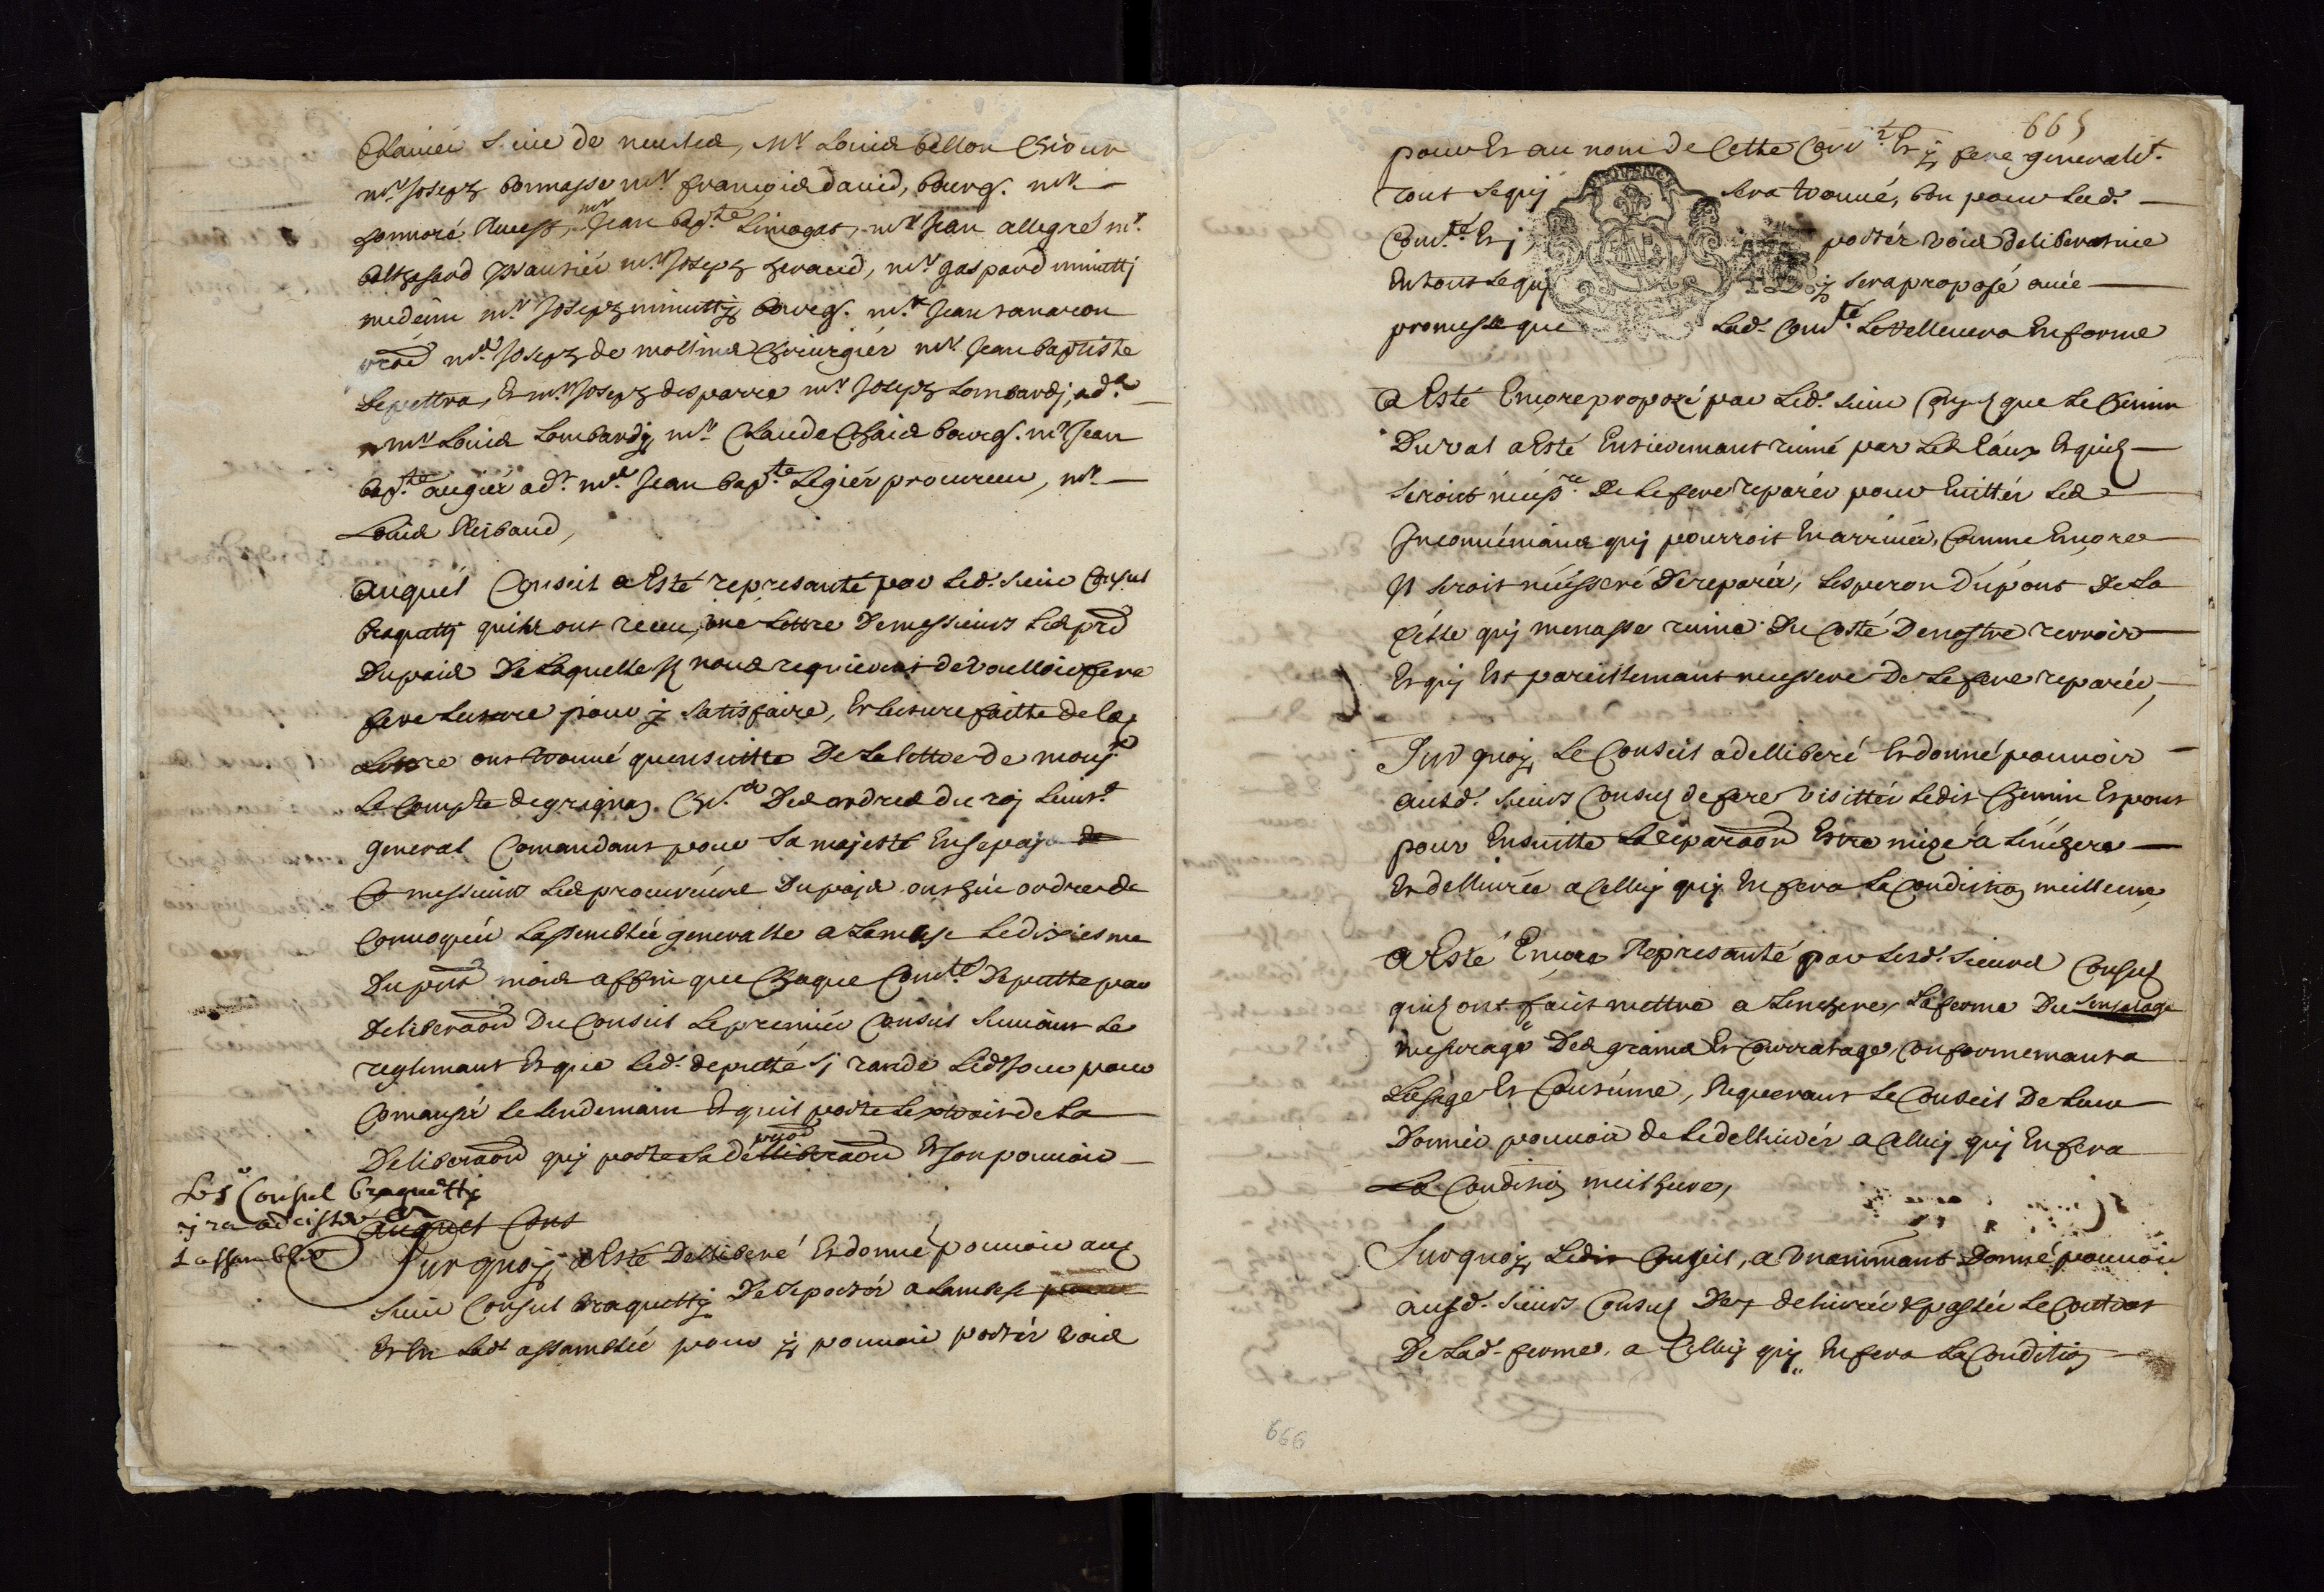 Clavier sieur de meules, mr. Louis bellon
mr. Joseph bonnasse mr. françois david, bourg. mr.
honnoré, mr Jean bap.te Limogat, mr. Jean allegre mr.
balthesard mr. Joseph geraud, mr. gaspard minutti
medecin mr. Joseph minutty bourg. mr. Jean
mr. Joseph de molsina Chirurgier mr. Jean baptiste
Et mr. Joseph desparra mr. Joseph Lombardj, ad.t
mr. Louis Lombardy mr. Claude Chaix bourg. mr. Jean
bap.te augier ad.t mr. Jean bap.te Legiér procureur, mr.
Louis Reibaud,
auquel Conseil a Esté represanté par Led. sieur Consul
Braquetty quils ont receu, une Lettre De messieurs Les
Du pais De Laquelle nous requierent de Voulloir fere
fere Lecture pour y satisfaire, Et Lecture faitte de la
Lettre ont trouvé quensuitte De La lettre de mons.r
Le Compte de grignan Ch.er Des ordres du roj Lieut.t
general Comandant pour sa majesté En se pays de
Ce messieurs Les procureurs Du pays ont heu ordre de
Convoquer Lassemblée generalle a Lambesc Le dixiesme
Du pnt mois affin que Chaque Com.te Deputte par
Deliberaon Du Conseil Le premier Consul suivant Le
reglemant Et que Led. deputté sj rande Led. Jour pour
Comanser Le Lendemain Et quil porte Lextrait de La
Deliberaon quj porte La delliberaon Et son pouvoir
Le sr Consul Braquetty
jra adcister a
Lassamblée
auquel Cons
Sur quoy a Esté Delliberé Et donné pouvoir au
sieur Consul Braquetty De se portér a Lambesc pour
Et En Lad. assamblée pour y pouvoir portér voix
665
pour Et au nom de Cette Com.té Et y fere generalt.
tout se quj sera trouvé, bon pour Lad.
Com.té Et j portér voix deliberative
En tout se quj y sera proposé avec
promesse que Lad. Com.té Le rellevera En forme
a Esté Encore proposé par Led. sieur Consul que Le Chemin
Du val a Esté Entieremant ruiné par Les Eaux Et quil
seroit De Le fere reparér pour Evittér Les
Inconvéniants quj pourroit En arriver, Comme Encore
Il seroit néssseré De reparér, Lesperon Du pont De La
Celle quj menasse ruine Du Costé De nostre terroir
Et quj Est pareillemant nesssere De Le fere reparér,
Sur quoy Le Conseil a delliberé Et donné pouvoir
ausd. sieurs Consuls de fere visittér Ledit Chemin Et pont
pour Ensuitte La reparaon Estre mize a Lenchere
Et delliuréé a Celluj quj En fera La Condition meilleure,
a Esté Encore Represanté par Lesd. sieurs Consuls
quils ont fait mettre a Lenchere, La ferme Du Lensalage
mesurage Des grains Et Courratage, Conformemant a
Lusage Et Coutume, Requerant Le Conseil De Leur
Donner pouvoir de Le dellivrér a Celluj quj En fera
La Condition meilheure,
Sur quoy Ledit Conseil, a Vnanimant Donné pouvoir
ausd. sieurs Consuls De delivrér Et passér Le Contrat
De Lad. ferme, a Celluj quj En fera La Condition
666